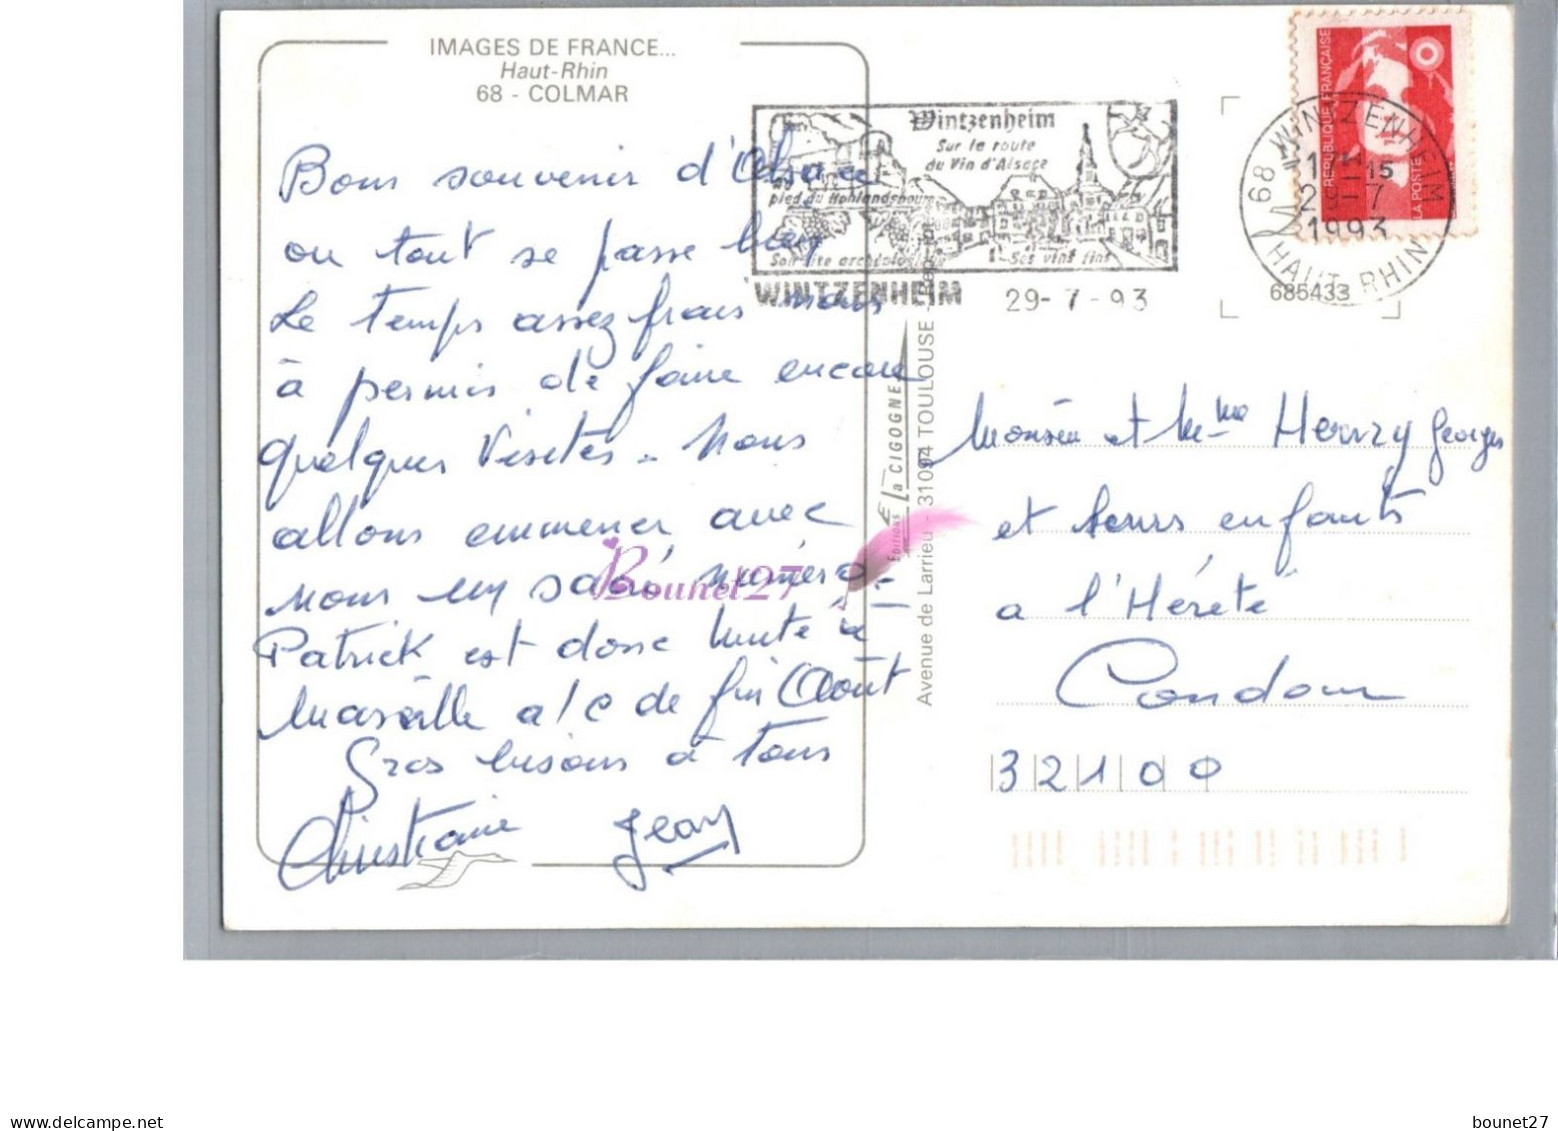 IMAGES DE FRANCE...
Haut-Rhin
68 - COLMAR
Bons souvenir d'Alsace
ou tout se passe bien
Le temps assez frais nous
à permis de faire encore
quelques Visites. Nous
allons emmener avec
nous un sacré numéro.
Patrick est donc invité à
Marseille a/c de fin Août
Gros bisous à tous
Christiane Jean
Wintzenheim
Sur la route
du Vin d'Alsace
au
pied du Hohlandsbourg
Son site archéologique
Ses vins fins
WINTZENHEIM
29-7-93
REPUBLIQUE FRANÇAISE
LA POSTE
68 WINTZENHEIM
17H15
29-7
1993
HAUT-RHIN
685433
Editions la CIGOGNE
Avenue de Larrieu - 31094 TOULOUSE
Monsieu et Mme Henry Georges
et leurs enfants
a l'Hérété
Condom
32100
Bounet27
bounet27